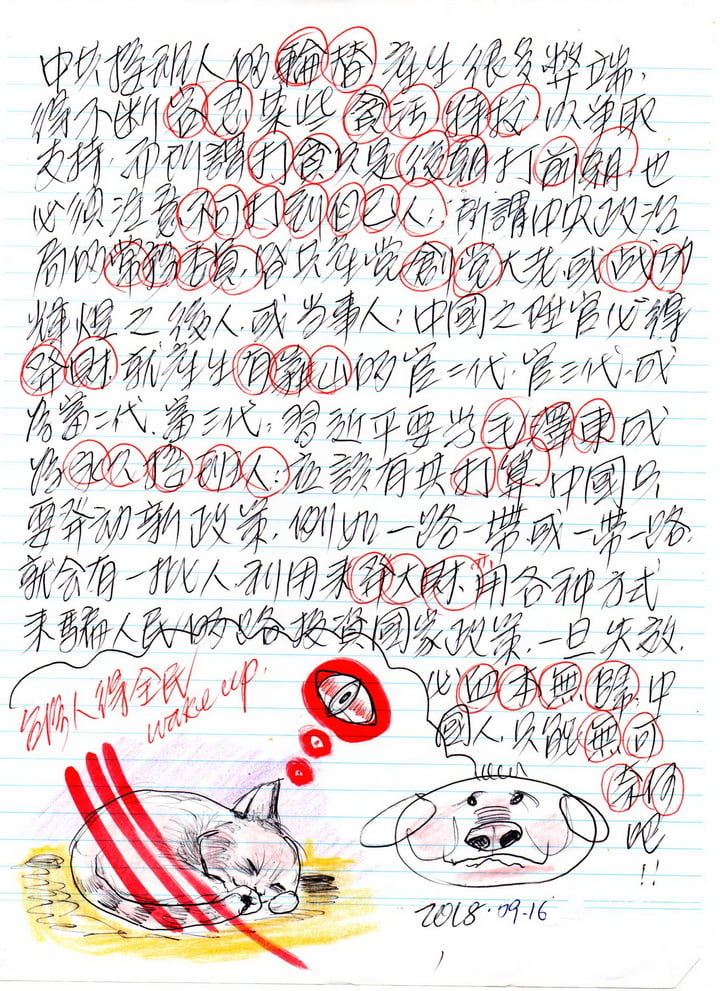 中共控制人的輪替產生很多弊端,
得不斷容忍某些貪污特权,以爭取
支持,而所謂打貪只是後朝打前朝,也
必須注意不可打到自己人;所謂中央政治
局的常務委員,皆共產党創党大老或战功
輝煌之後人或当事人;中國之陞官必得
發財就產生有靠山的官二代.官三代.成
為富二代.富三代;習近平要学毛澤東成
為永久控制人;应該有其打算.中國只
要發动新政策,例如一路一帶或一帶一路,
就会有一批人利用來發大財,用各种方式
來騙人民的錢投資國家政策,一旦失敗,
必血本無歸,中
國人,只能無可
奈何
吧
!!
台灣人得全民
wake up.
2018.09-16